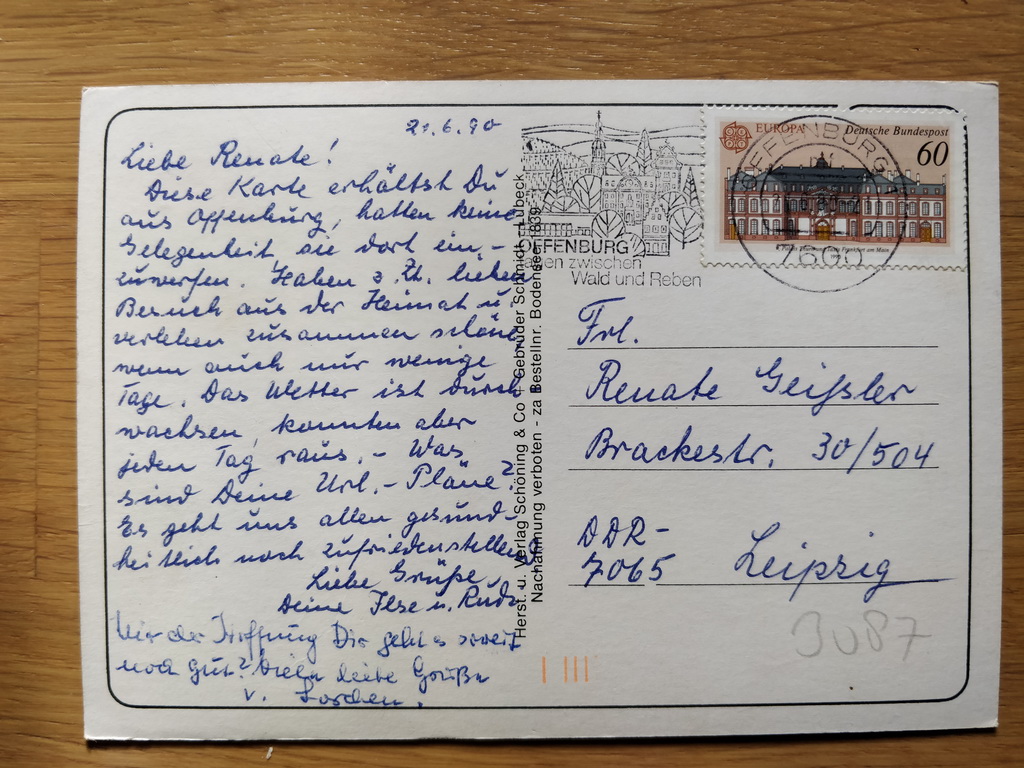 21.6.90
Liebe Renate!
Diese Karte erhältst Du
aus Offenburg, hatten keine
Gelegenheit sie dort ein-
zuwerfen. Haben z. Zt. lieben
Besuch aus der Heimat u.
verleben zusammen schöne
wenn auch nur wenige
Tage. Das Wetter ist durch
wachsen, konnten aber
jeden Tag raus. - Was
sind Deine Url. - Pläne?
Es geht uns allen gesund-
heitlich noch zufriedenstellend
Liebe Grüße
Deine Ilse u. Rudi
der Hoffnung Dir geht es soweit
noch gut? Viele liebe Grüße
v.
Herst. u. Verlag Schöning & Co + Gebrüder Schmidt - Lübeck
Nachahmung verboten - za Bestellnr. Bodensee 1839
OFFENBURG
zwischen
Wald und Reben
EUROPA
Deutsche Bundespost
60
OFFENBURG
7600
Frl.
Renate Geißler
Brackestr. 30/504
DDR-
7065 Leipzig
3087